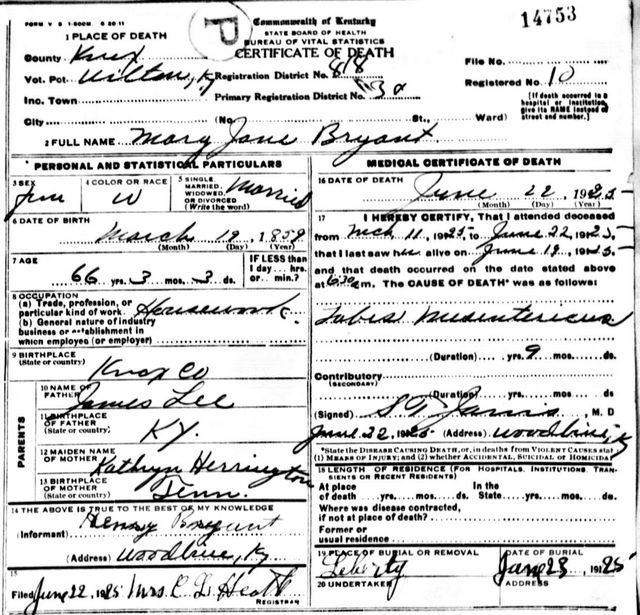 FORM V S 1-500M 6 20 11
14753
P
Commonwealth of Kentucky
STATE BOARD OF HEALTH
BUREAU OF VITAL STATISTICS
CERTIFICATE OF DEATH
1 PLACE OF DEATH
County Knox
Vot. Pct. Wilton, Ky
Registration District No. 818
File No.
Inc. Town
Primary Registration District No.
Registered No. 10
City (No. St., Ward)
[If death occurred in a hospital or institution, give its NAME instead of street and number.]
2 FULL NAME Mary Jane Bryant
PERSONAL AND STATISTICAL PARTICULARS
3 SEX Fem
4 COLOR OR RACE W
5 SINGLE, MARRIED, WIDOWED, OR DIVORCED (Write the word) Married
6 DATE OF BIRTH
March 19, 1859
(Month) (Day) (Year)
7 AGE
66 yrs. 3 mos. 3 ds.
IF LESS than 1 day... hrs. or min.?
8 OCCUPATION
(a) Trade, profession, or particular kind of work Housework
(b) General nature of industry business or establishment in which employed (or employer)
9 BIRTHPLACE
(State or country)
Knox Co
PARENTS
10 NAME OF FATHER James Lee
11 BIRTHPLACE OF FATHER (State or country) KY.
12 MAIDEN NAME OF MOTHER Kathryn Herrington
13 BIRTHPLACE OF MOTHER (State or country) Tenn.
14 THE ABOVE IS TRUE TO THE BEST OF MY KNOWLEDGE
(Informant) Henry Bryant
(Address) Woodbine, Ky
15
Filed June 22, 1925 Mrs. C L Heath
REGISTRAR
MEDICAL CERTIFICATE OF DEATH
16 DATE OF DEATH
June 22, 1925
(Month) (Day) (Year)
17 I HEREBY CERTIFY, That I attended deceased
from Mch 11, 1925 to June 22, 1925
that I last saw her alive on June 19, 1925,
and that death occurred on the date stated above
at 6:30 a m. The CAUSE OF DEATH* was as follows:
Tabes Mesentericus
(Duration) yrs. 9 mos. ds.
Contributory
(SECONDARY)
(Duration) yrs. mos. ds.
(Signed) , M. D
June 22, 1925 (Address) Woodbine, Ky
*State the DISEASE CAUSING DEATH, or, in deaths from VIOLENT CAUSES state
(1) MEANS OF INJURY; and (2) whether ACCIDENTAL, SUICIDAL or HOMICIDAL
18 LENGTH OF RESIDENCE (FOR HOSPITALS, INSTITUTIONS, TRANSIENTS OR RECENT RESIDENTS)
At place of death yrs. mos. ds.
In the State yrs. mos. ds.
Where was disease contracted, if not at place of death?
Former or usual residence
19 PLACE OF BURIAL OR REMOVAL
Liberty
DATE OF BURIAL
June 23, 1925
20 UNDERTAKER
ADDRESS